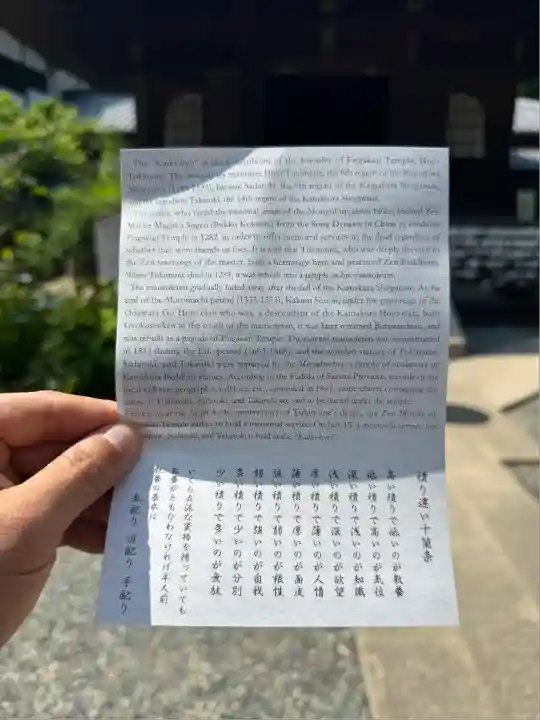 The "Kaiki-byo" is the mausoleum of the founder of Engakuji Temple, Hojo
Tokimune. The mausoleum enshrines Hojo Tokimune, the 8th regent of the Kamakura
Shogunate (1185-1333), his son Sadatoki, the 9th regent of the Kamakura Shogunate,
and his grandson Takatoki, the 14th regent of the Kamakura Shogunate.
Tokimune, who faced the national crisis of the Mongol invasions, invited Zen
Master Mugaku Sogen (Bukko Kokushi) from the Song Dynasty in China to establish
Engakuji Temple in 1282, in order to offer memorial services to the dead regardless of
whether they were friends or foes. It is said that Tokimune, who was deeply devoted to
the Zen teachings of the master, built a hermitage here and practiced Zen Buddhism.
When Tokimune died in 1284, it was rebuilt into a temple as his mausoleum.
The mausoleum gradually faded away after the fall of the Kamakura Shogunate. At the
end of the Muromachi period (1333-1573), Kakuen Shuon, under the patronage of the
Odawara Go-Hojo clan who was a descendant of the Kamakura Hojo clan, built
to the south of the mausoleum, it was later renamed Butsunichian, and
was rebuilt as a pagoda of Engakuji Temple. The current mausoleum was reconstructed
in 1811 during the Edo period (1603-1868), and the wooden statues of Tokimune,
Sadatoki, and Takatoki were
Kamakura Buddhist statues. According to the Fudoki of Sagami Province,
local
ashes of Tokimune, Sadatoki, and Takatoki are said to be buried under the temple.
Every year on April 4, the anniversary of Tokimune's death, the Zen Monks of
Engakuji Temple gather to hold a memorial service. On July 15, a memorial service for
Tokimune, Sadatoki, and Takatoki is held at the "Kaiki-byo".
積り違い十箇条
高い積りで低いのが教養
低い積りで高いのが気位
深い積りで浅いのが知識
浅い積りで深いのが欲望
厚い積りで薄いのが人情
薄い積りで厚いのが面皮
強い積りで弱いのが根性
弱い積りで強いのが自我
多い積りで少いのが分別
少い積りで多いのが無駄
いくら立派な資格を持っていても
教養がともなわなければ半人前
教養の基本は
気配り 目配り 手配り